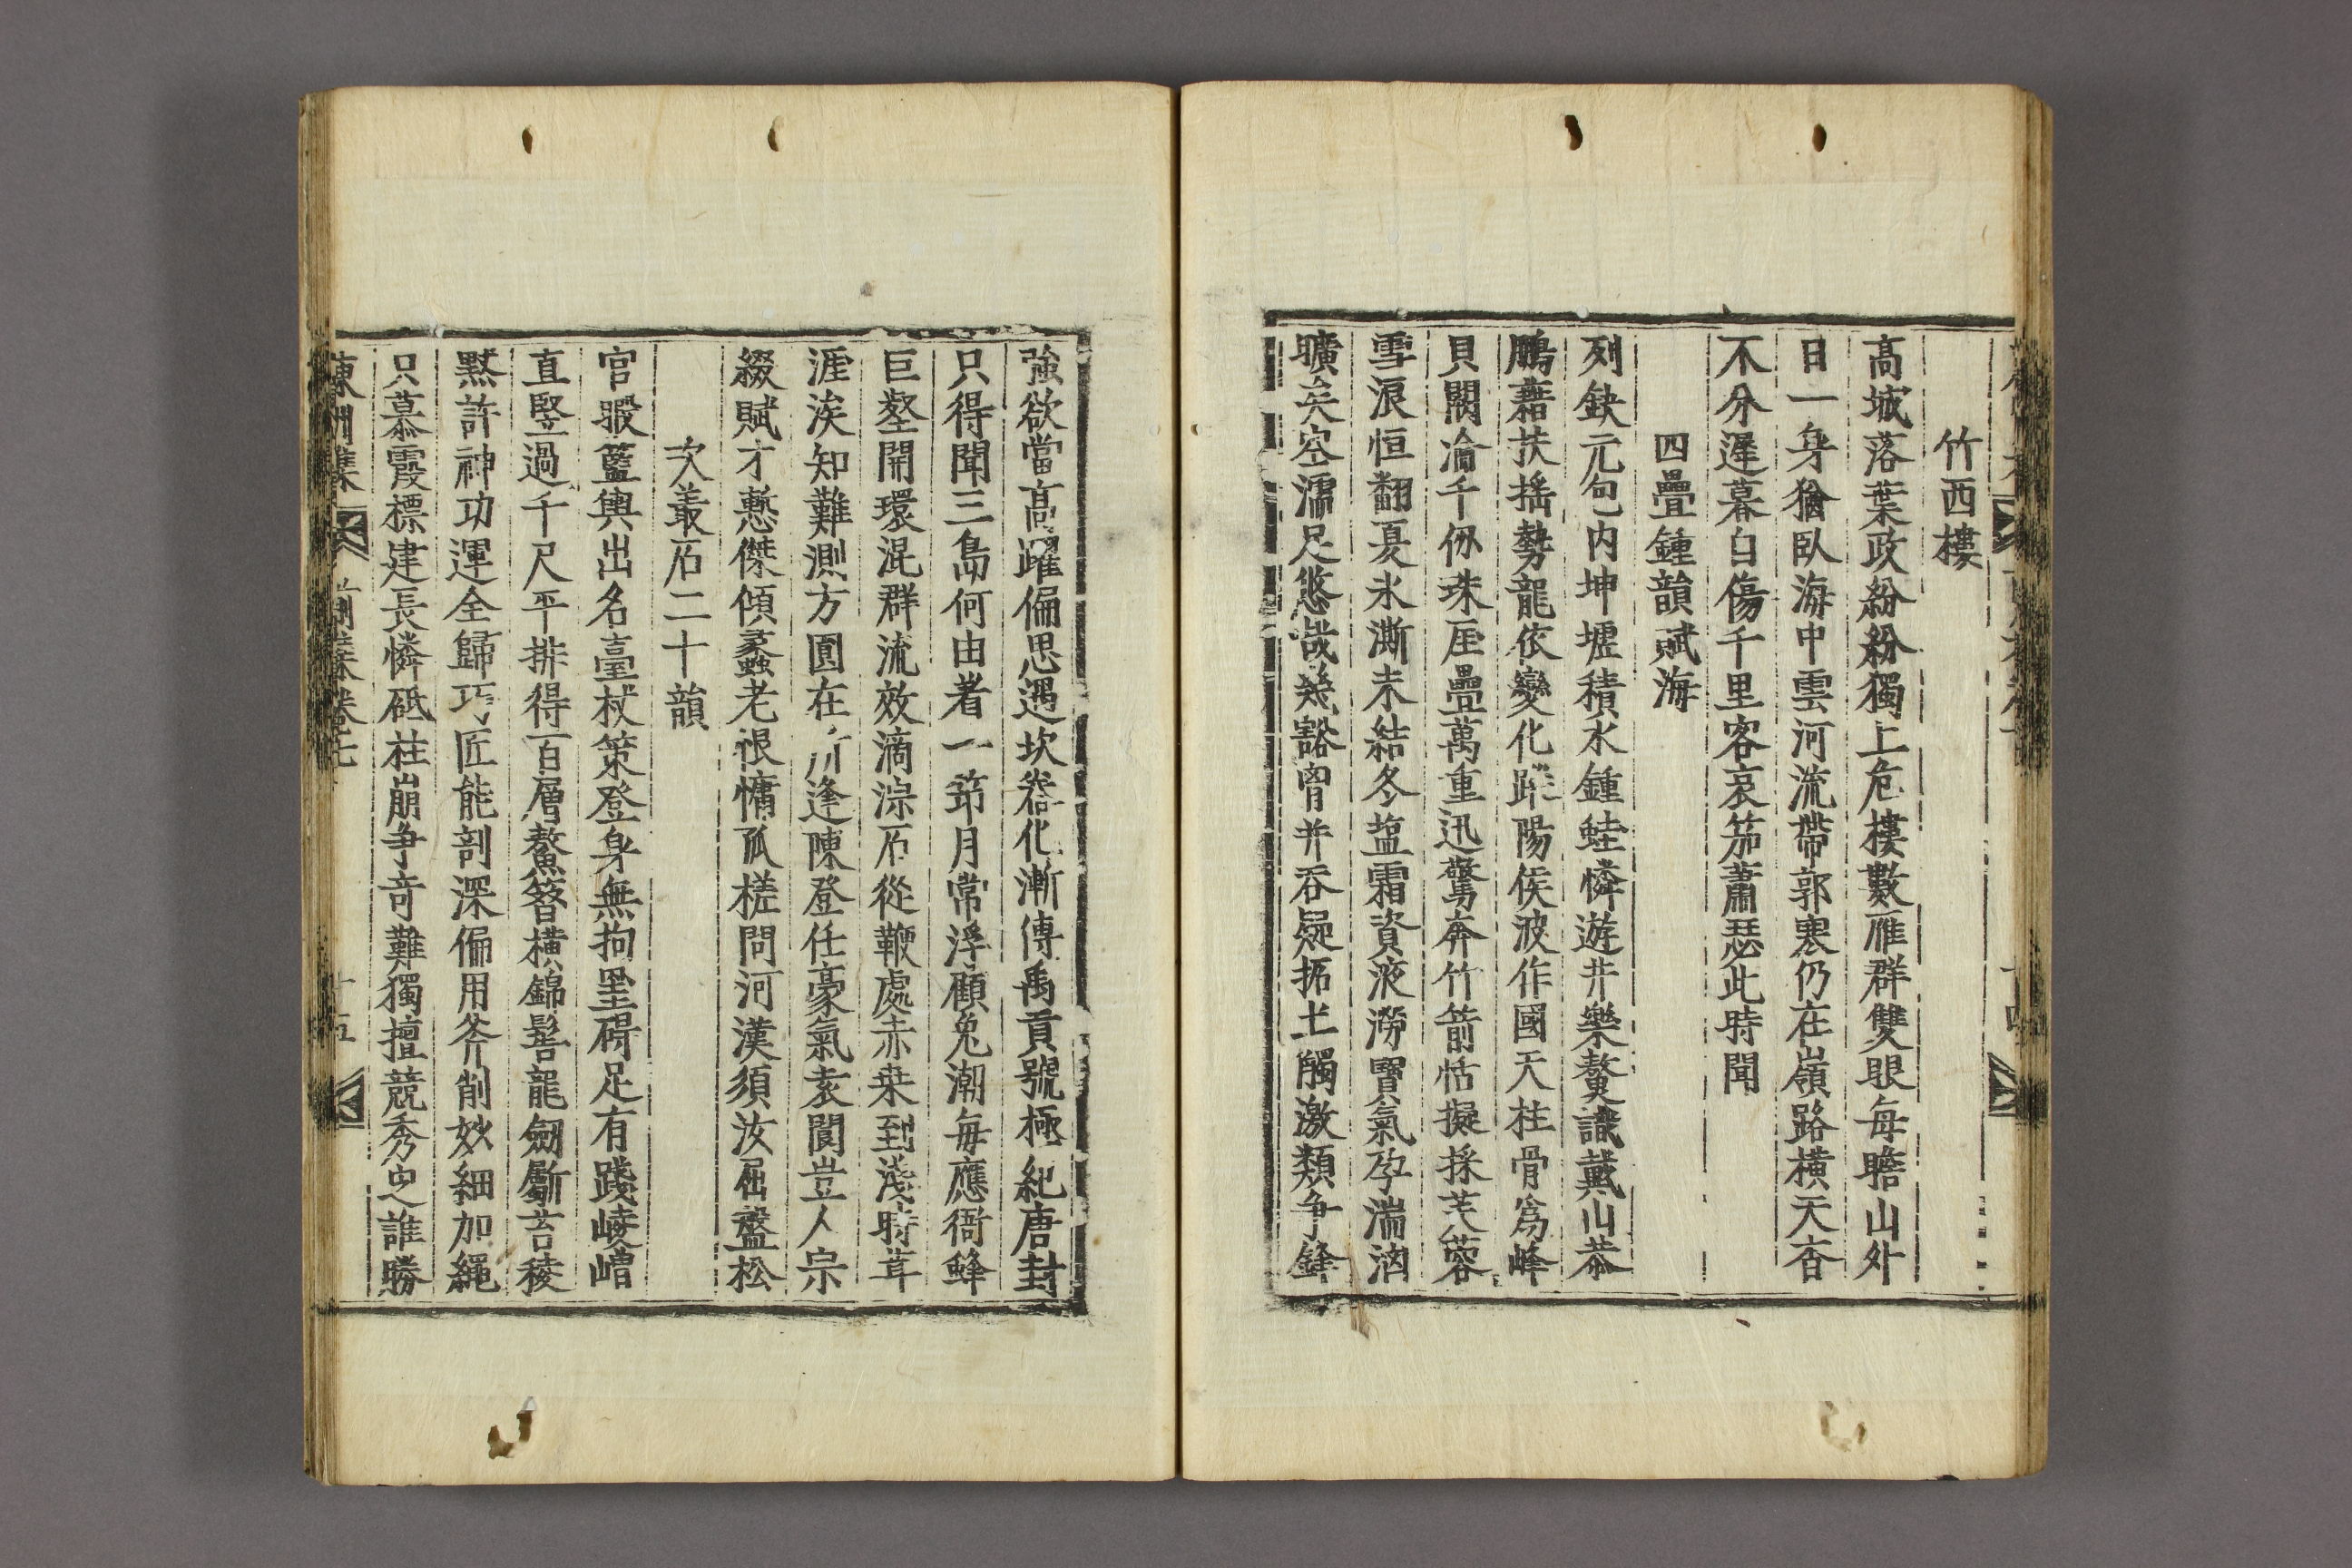 竹西樓
高城落葉政紛紛獨上危樓數雁群雙眼每瞻山外
日一身猶臥海中雲河流帶郭寒仍在嶺路橫天杳
不分遲暮自傷千里客哀笳蕭瑟此時聞
四疊鍾韻賦海
列缺元包內坤墟積水鍾蛙憐遊井樂鰲識戴山恭
鵬藉扶搖勢龍依變化蹤陽侯波作國天柱骨爲峰
貝闕淪千仞珠厓疊萬重迅驚奔竹箭恬擬採芙蓉
雪浪恒翻夏氷澌未結冬塩霜資液澇寶氣孕湍洶
曠矣空濡足悠哉幾豁胷并吞疑拓土觸激類爭鋒
強欲當高躍偏思遇坎谾化漸傳禹貢號極紀唐封
只得聞三島何由着一筇月常浮顧兔潮每應衙蜂
巨壑開環混群流效滴淙石從鞭處赤桒到淺時茸
涯涘知難測方圓在所逢陳登任豪氣袁閎豈人宗
綴賦才慙傑傾蠡老恨慵孤槎問河漢須汝屈盤松
次叢石二十韻
官暇籃輿出名臺杖策登身無拘罣碍足有踐崚嶒
直竪過千尺平排得百層鰲簪橫錦髻龍劒斸苔稜
黙許神功運全歸巧匠能剖深偏用斧削妙細加繩
只慕霞標建長憐砥柱崩爭奇難獨擅競秀㝎誰勝
東州集 前集卷之七 十五